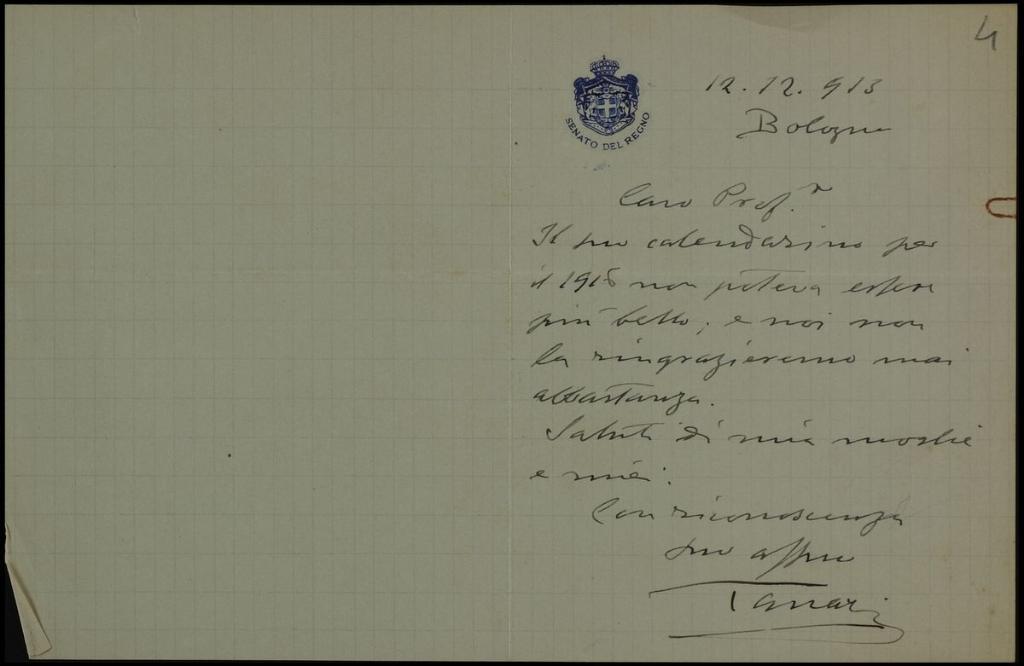 4
SENATO DEL REGNO
12.12.913
Bologna
Caro Prof.r
Il suo calendarino per
il 1915 non poteva essere
più bello; e noi non
la ringrazieremo mai
abbastanza.
Saluti di mia moglie
e miei.
Con riconoscenza
suo affmo
Tanari